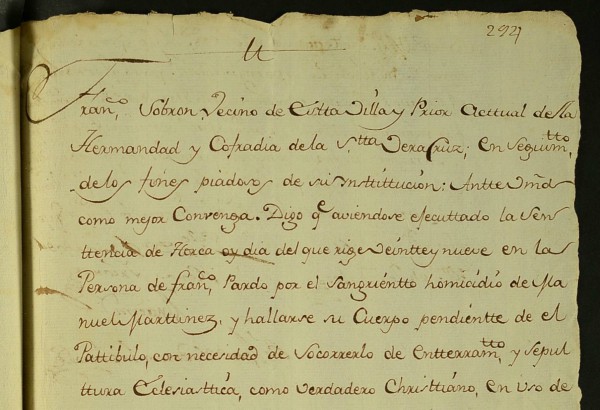 292
U
Fran.co Sobron Vecino de Estta Villa y Prior acttual de la
Hermandad y Cofradia de la S.tta Vera Cruz; en Seguim.tto
de los fines piadosos de su instittución: Antte Vmd
como mejor Convenga. Digo q.e aviendose ejecuttado la Sen
ttencia de Horca oy dia del que rige Veintte y nueve en la
Persona de fran.co Pardo por el Sangrientto homicidio de Ma
nuel Marttinez, y hallarse su Cuerpo pendientte de el
Pattibulo, con necesidad de Socorrerlo de Entterram.tto y sepul
ttura Eclesiasttica, como verdadero Christtiano, en uso de